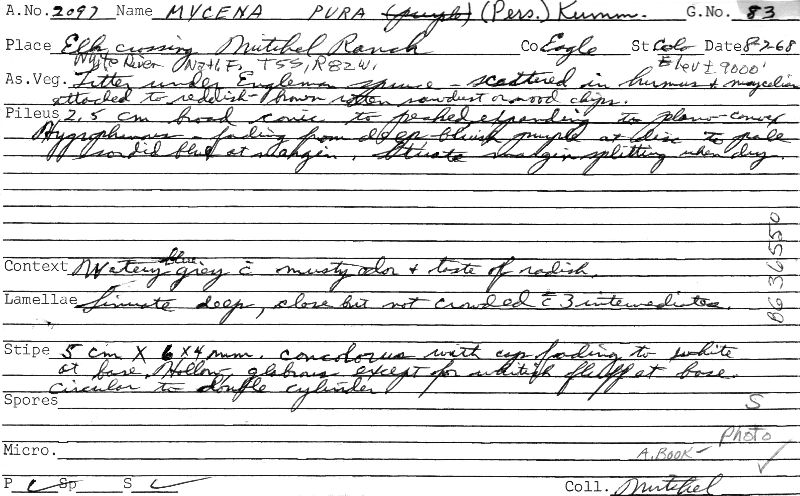 A.No. 2097 Name MYCENA PURA (purple) (Pers.) Kumm. G.No. 83
Place Elk crossing Mitchel Ranch Co Eagle St Colo Date 8-2-68
White River Nat'l F. T5S, R82W. Elev ± 9000'
As.Veg. Litter under Engleman spruce scattered in humus & mycelium
attached to reddish-brown rotten sawdust or wood chips.
Pileus 2.5 cm broad conic to peaked expanding to plano-convex
Hygrophanous - fading from deep bluish purple at disc to pale
sordid blue at margin. Striate margin splitting when dry.
Context Watery blue grey c̄ musty odor & taste of radish.
Lamellae Sinuate deep, close but not crowded c̄ 3 intermediates.
Stipe 5 cm X 6 x 4 mm. concolorus with cap fading to white
at base. Hollow, glabrous except for whitish fluff at base.
circular to double cylinder
Spores S
BG 36550
Photo
Micro. A.BOOK - ✓
P ✓ Sp S ✓ Coll. Mitchel